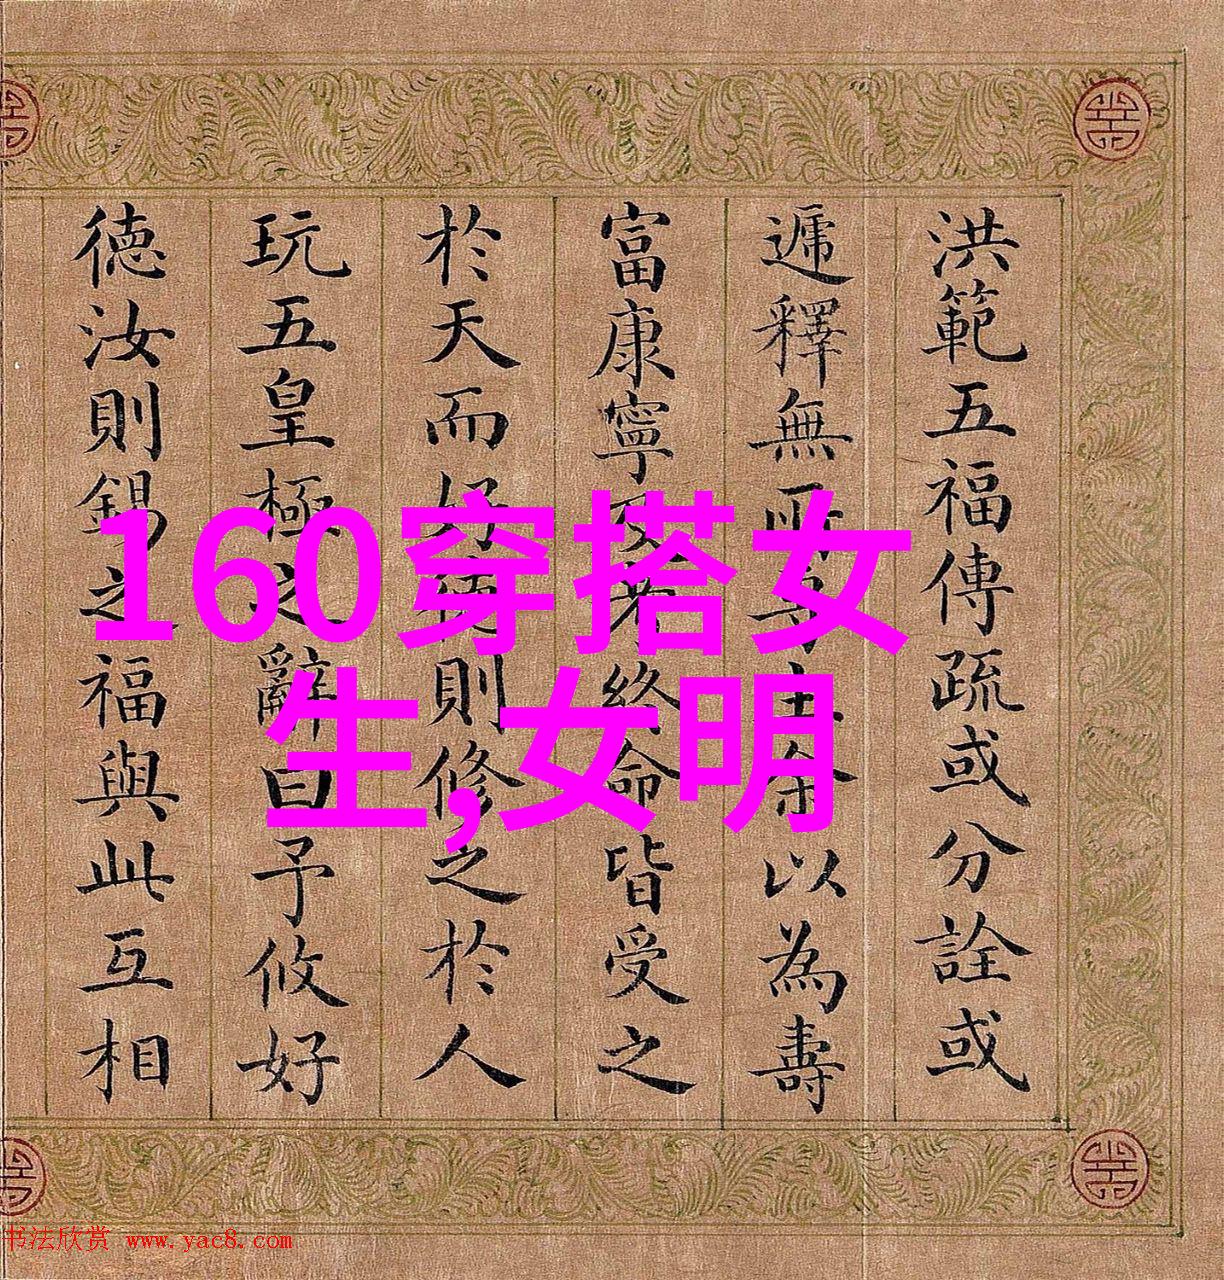 洪範五福傳疏或分詮或
遞釋無所主余以為壽
富康寧及考終命皆受之
於天而好德則修之於人
玩五皇極之辭曰予攸好
德汝則錫之福與此互相
160穿搭女
生,女明
书法欣赏 www.yac8.com